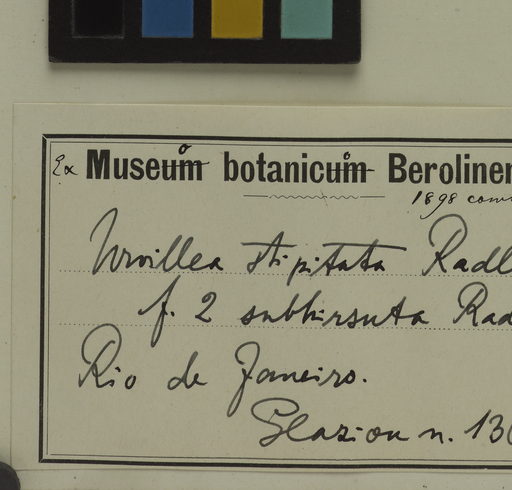 Ex Museo botanico Beroliner
1898 com
Urvillea stipitata Radl
f. 2 subhirsuta Rad
Rio de Janeiro.
Glaziou n. 130